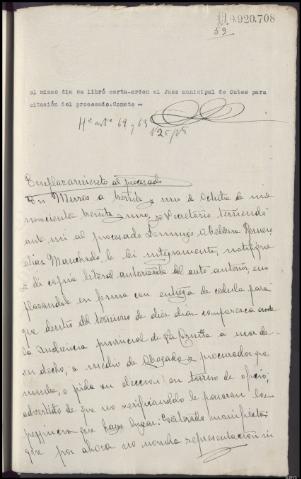 1L9.920.708
59
El mismo dia se libró carta-orden al Juez municipal de Outes para
citación del procesado.Conste -
Emplazamiento al procesado
En Muros a treinta y uno de Octubre de mil
novecientos treinta y uno, yo Secretario teniendo
ante mi al procesado Domingo Caldeiro
alias Marchado le leí integramente, notifiqué
y di copia literal autorizada del auto anterior, em
plazandole en forma con entrega de cédula para
que dentro del término de diez dias comparezca ante
la Audiencia provincial de La Coruña a usar de
su derecho, a medio de Abogado y procurador que
nombre, o pida su elección en turno de oficio,
advertido de que no verificandolo le pararan los
perjuicios que haya lugar. Enterado manifestó:
que por ahora no nombra representación ni